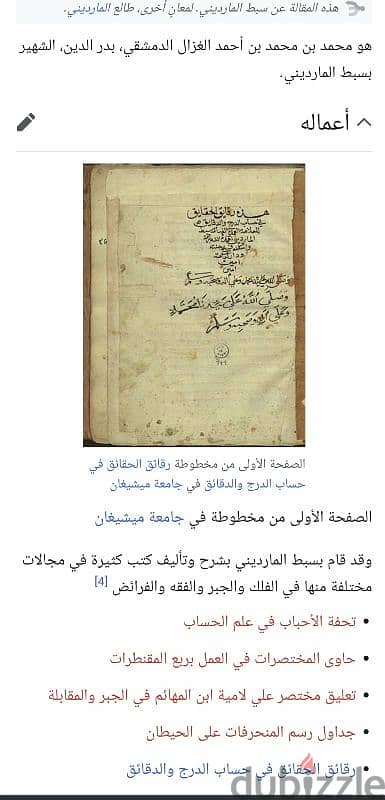 هذه المقالة عن سبط المارديني. لمعانٍ أخرى، طالع المارديني.
هو محمد بن محمد بن أحمد الغزال الدمشقي، بدر الدين، الشهير
بسبط المارديني.
أعماله
هذه رقائق الحقايق
الصفحة الأولى من مخطوطة رقائق الحقائق في
حساب الدرج والدقائق في جامعة ميشيغان
الصفحة الأولى من مخطوطة في جامعة ميشيغان
وقد قام بسبط المارديني بشرح وتأليف كتب كثيرة في مجالات
مختلفة منها في الفلك والجبر والفقه والفرائض [4]
• تحفة الأحباب في علم الحساب
• حاوى المختصرات في العمل بربع المقنطرات
• تعليق مختصر علي لامية ابن المهائم في الجبر والمقابلة
• جداول رسم المنحرفات على الحيطان
• رقائق الحقائق في حساب الدرج والدقائق
dubizzle